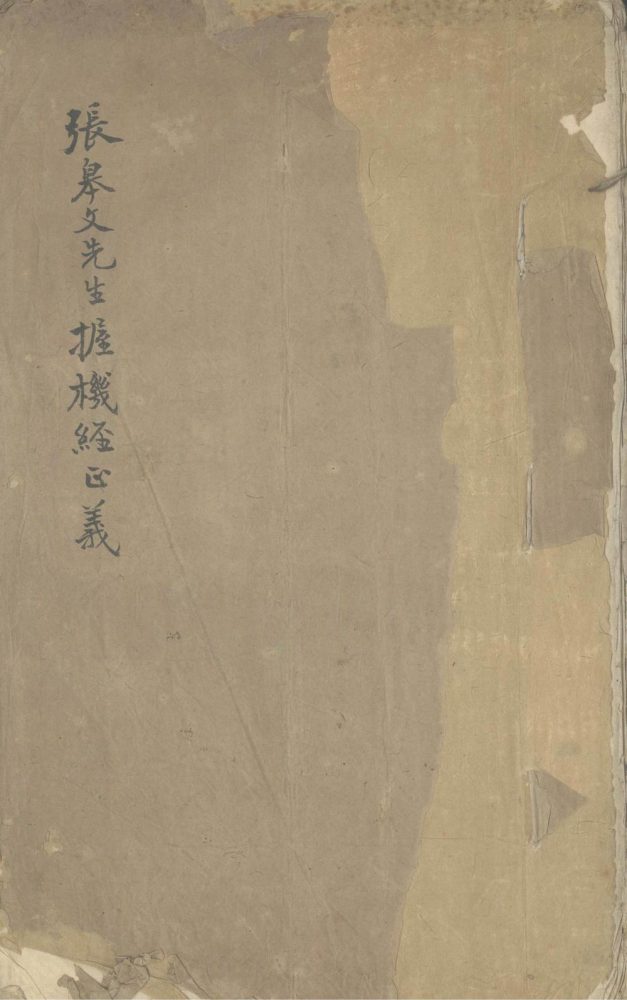 張皋文先生握機經正義